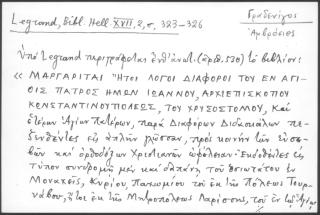 Legrand, Bibl. Hell. XVII, 2, σ, 323-326
Γραδενίγος
Ἀμβρόσιος
Ὑπὸ Legrand περιγράφεται ἐνθ' ἀνωτ. (ἀριθ. 530) τὸ βιβλίον:
« ΜΑΡΓΑΡΙΤΑΙ ἬΤΟΙ ΛΟΓΟΙ ΔΙΑΦΟΡΟΙ ΤΟΥ ΕΝ ΑΓΙ-
ΟΙΣ ΠΑΤΡΟΣ ΗΜΩΝ ΙΩΑΝΝΟΥ, ΑΡΧΙΕΠΙΣΚΟΠΟΥ
ΚΩΝΣΤΑΝΤΙΝΟΥΠΟΛΕΩΣ, ΤΟΥ ΧΡΥΣΟΣΤΟΜΟΥ, Καὶ
ἑτέρων Ἁγίων Πατέρων, παρὰ Διαφόρων Διδασκάλων πε-
ζευθέντες εἰς ἁπλῆν γλῶσσαν, πρὸς κοινὴν τῶν εὐσε-
βῶν καὶ ὀρθοδόξων Χριστιανῶν ὠφέλειαν. Ἐκδοθέντες εἰς
τύπον συνδρομῇ μὲν καὶ δαπάνῃ, τοῦ ὁσιωτάτου ἐν
Μοναχοῖς, Κυρίου, Παχωμίου τοῦ ἐκ τῆς Πόλεως Τουρ-
νάβου, ἤτοι ἐκ τῆς Μητροπόλεως Λαρίσσης, τοῦ ἐν τῷ Ἁγίῳ